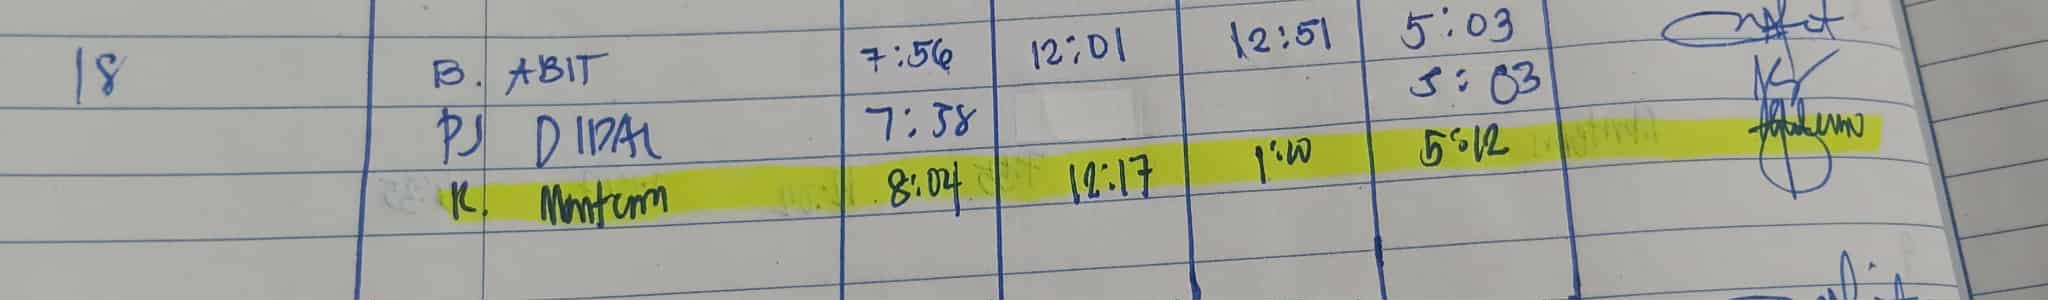 18 B. ABIT 7:56 12:01 12:51 5:03
PJ DIDAL 7:38 5:03
K. 8:04 12:17 1:10 5:12